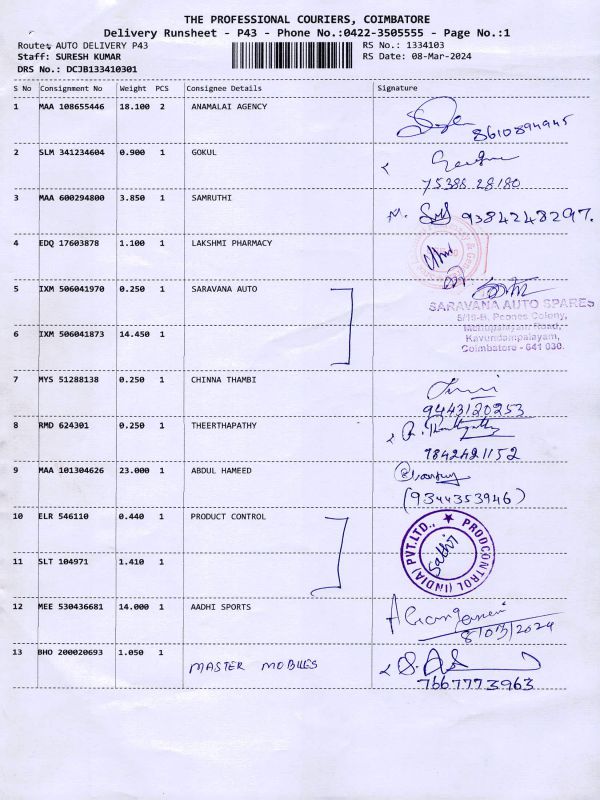 THE PROFESSIONAL COURIERS, COIMBATORE
Delivery Runsheet - P43 - Phone No.:0422-3505555 - Page No.:1
Route: AUTO DELIVERY P43
RS No.: 1334103
Staff: SURESH KUMAR
RS Date: 08-Mar-2024
DRS No.: DCJB133410301
S No Consignment No Weight PCS Consignee Details Signature
1 MAA 108655446 18.100 2 ANAMALAI AGENCY
8610894945
2 SLM 341234604 0.900 1 GOKUL
75388 28180
3 MAA 600294800 3.850 1 SAMRUTHI
9384248297.
4 EDQ 17603878 1.100 1 LAKSHMI PHARMACY
5 IXM 506041970 0.250 1 SARAVANA AUTO
SARAVANA AUTO SPARES
5/19-B, Peones Colony,
Road,
Kavundampalayam,
Coimbatore - 641 030.
6 IXM 506041873 14.450 1
7 MYS 51288138 0.250 1 CHINNA THAMBI
9443120253
8 RMD 624301 0.250 1 THEERTHAPATHY
7842421152
9 MAA 101304626 23.000 1 ABDUL HAMEED
(9344353946)
10 ELR 546110 0.440 1 PRODUCT CONTROL
PRODCONTROL (INDIA) PVT.LTD.,
Sathi
11 SLT 104971 1.410 1
12 MEE 530436681 14.000 1 AADHI SPORTS
8/03/2024
13 BHO 200020693 1.050 1 MASTER MOBILES
7667773963